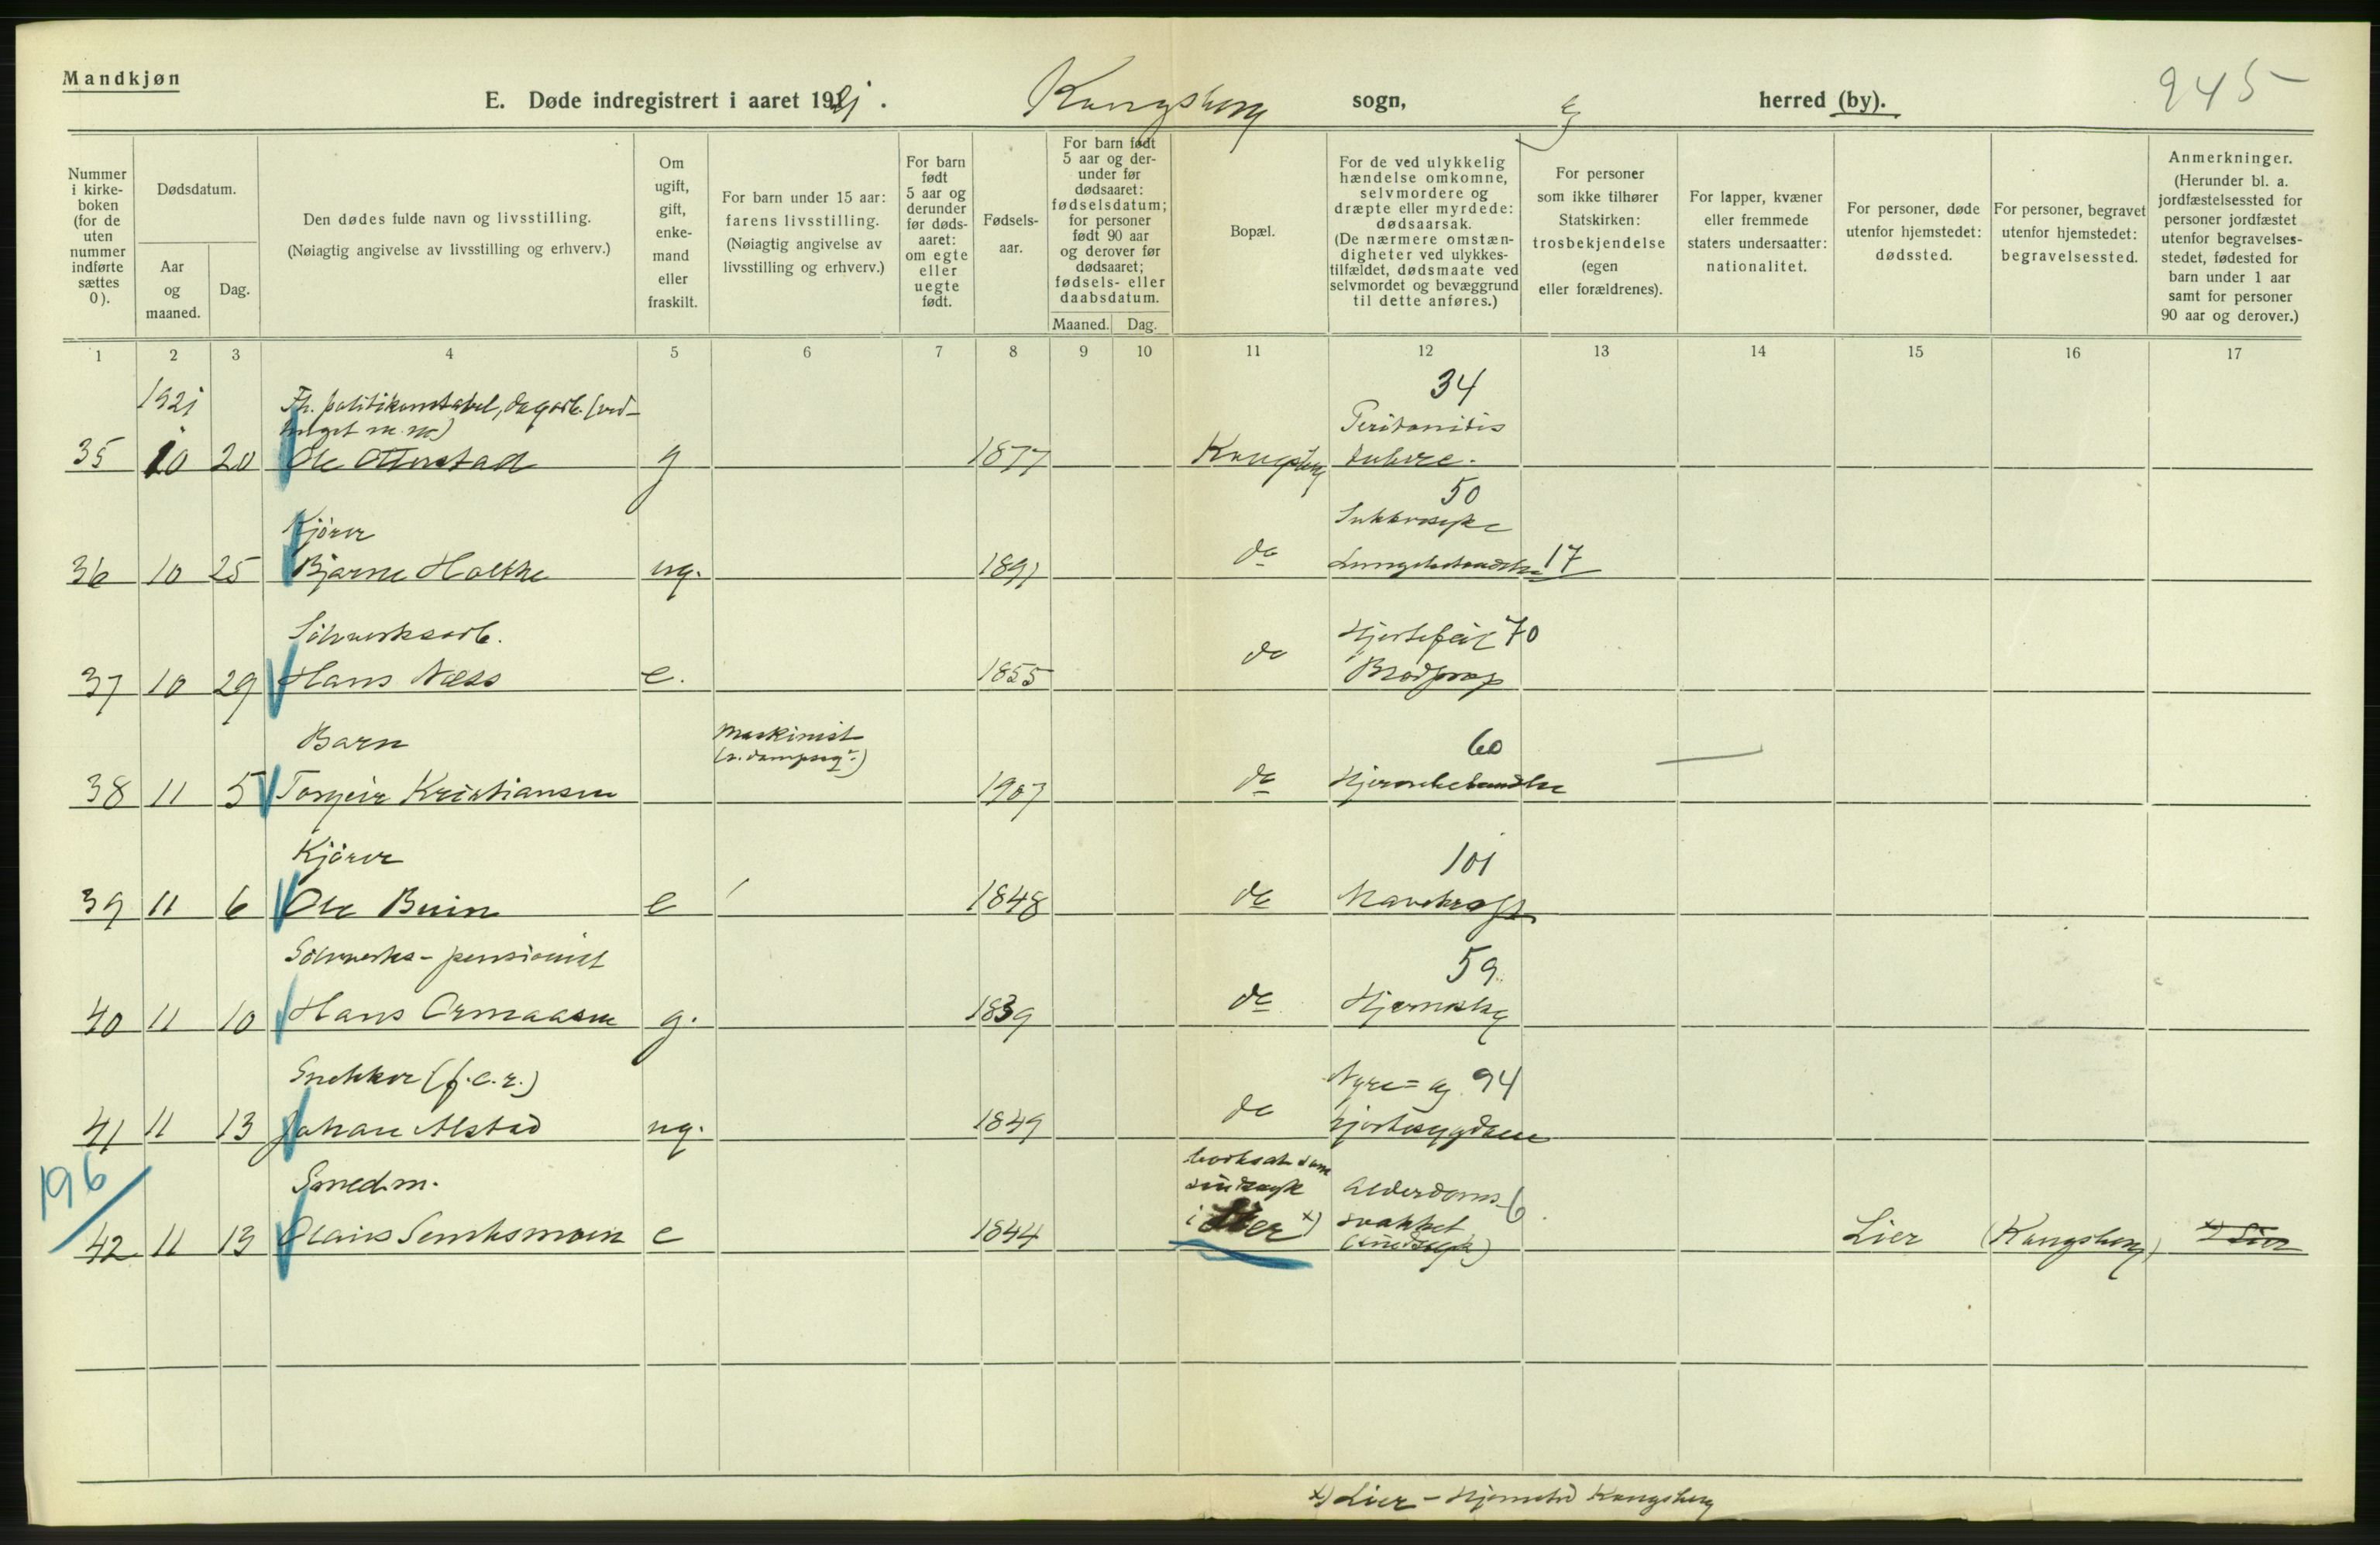 Mandkjøn
E. Døde indregistrert i aaret 1921. Kongsberg sogn, herred (by). 245
Nummer i kirke-boken (for de uten nummer indførte sættes 0).
Dødsdatum.
Aar og maaned.
Dag.
Den dødes fulde navn og livsstilling.
(Nøiagtig angivelse av livsstilling og erhverv.)
Om ugift, gift, enke-mand eller fraskilt.
For barn under 15 aar: farens livsstilling.
(Nøiagtig angivelse av livsstilling og erhverv.)
For barn født 5 aar og derunder før døds-aaret: om egte eller uegte født.
Fødsels-aar.
For barn født 5 aar og der-under før dødsaaret: fødselsdatum; for personer født 90 aar og derover før dødsaaret; fødsels- eller daabsdatum.
Maaned. Dag.
Bopæl.
For de ved ulykkelig hændelse omkomne, selvmordere og dræpte eller myrdede: dødsaarsak.
(De nærmere omstæn-digheter ved ulykkes-tilfældet, dødsmaate ved selvmordet og bevæggrund til dette anføres.)
For personer som ikke tilhører Statskirken: trosbekjendelse (egen eller forældrenes).
For lapper, kvæner eller fremmede staters undersaatter: nationalitet.
For personer, døde utenfor hjemstedet: dødssted.
For personer, begravet utenfor hjemstedet: begravelsessted.
Anmerkninger.
(Herunder bl. a. jordfæstelsessted for personer jordfæstet utenfor begravelses-stedet, fødested for barn under 1 aar samt for personer 90 aar og derover.)
1 2 3 4 5 6 7 8 9 10 11 12 13 14 15 16 17
1921 Fh. politikonstabel, dagarb. (ved- 34
m.m.) Peritonitis
35 10 20 Ole Otterstad g 1877 Kongsberg tuberc.
50
Kjører Sukkersyke
36 10 25 Bjarne Holthe ug. 1891 do Lungebetændelse 17
Sölvverksarb. Hjertefeil 70
37 10 29 Hans Næss e. 1855 do Blodprop
Barn Maskinist 60
38 11 5 Torgeir Kristiansen 1907 do Hjernebetændelse
Kjörer 101
39 11 6 Ole Buin e 1848 do Mavekræft
Sölvverks-pensionist 59
40 11 10 Hans Ormaasen g. 1839 do Hjerneslag
Snekker (f.e.r.) Nyre= og 94
41 11 13 Johan Alstad ug. 1849 do hjertesygdom
196 Smedm. bortsat som sindssyk Alderdoms- 6
42 11 13 Olaus e 1844 i Lier x) svakhet (sindssyk) Lier (Kongsberg) x) Lier
x) Lier - Hjemsted Kongsberg